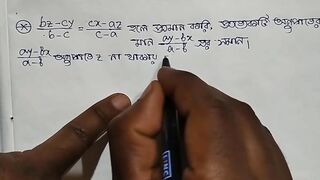 ⊛ (bz-cy)/(b-c) = (cx-az)/(c-a) হলে প্রমাণ করি, প্রত্যেকটি অনুপাতের
মান (ay-bx)/(a-b) এর সমান।
(ay-bx)/(a-b) অনুপাতে z না থাকায়